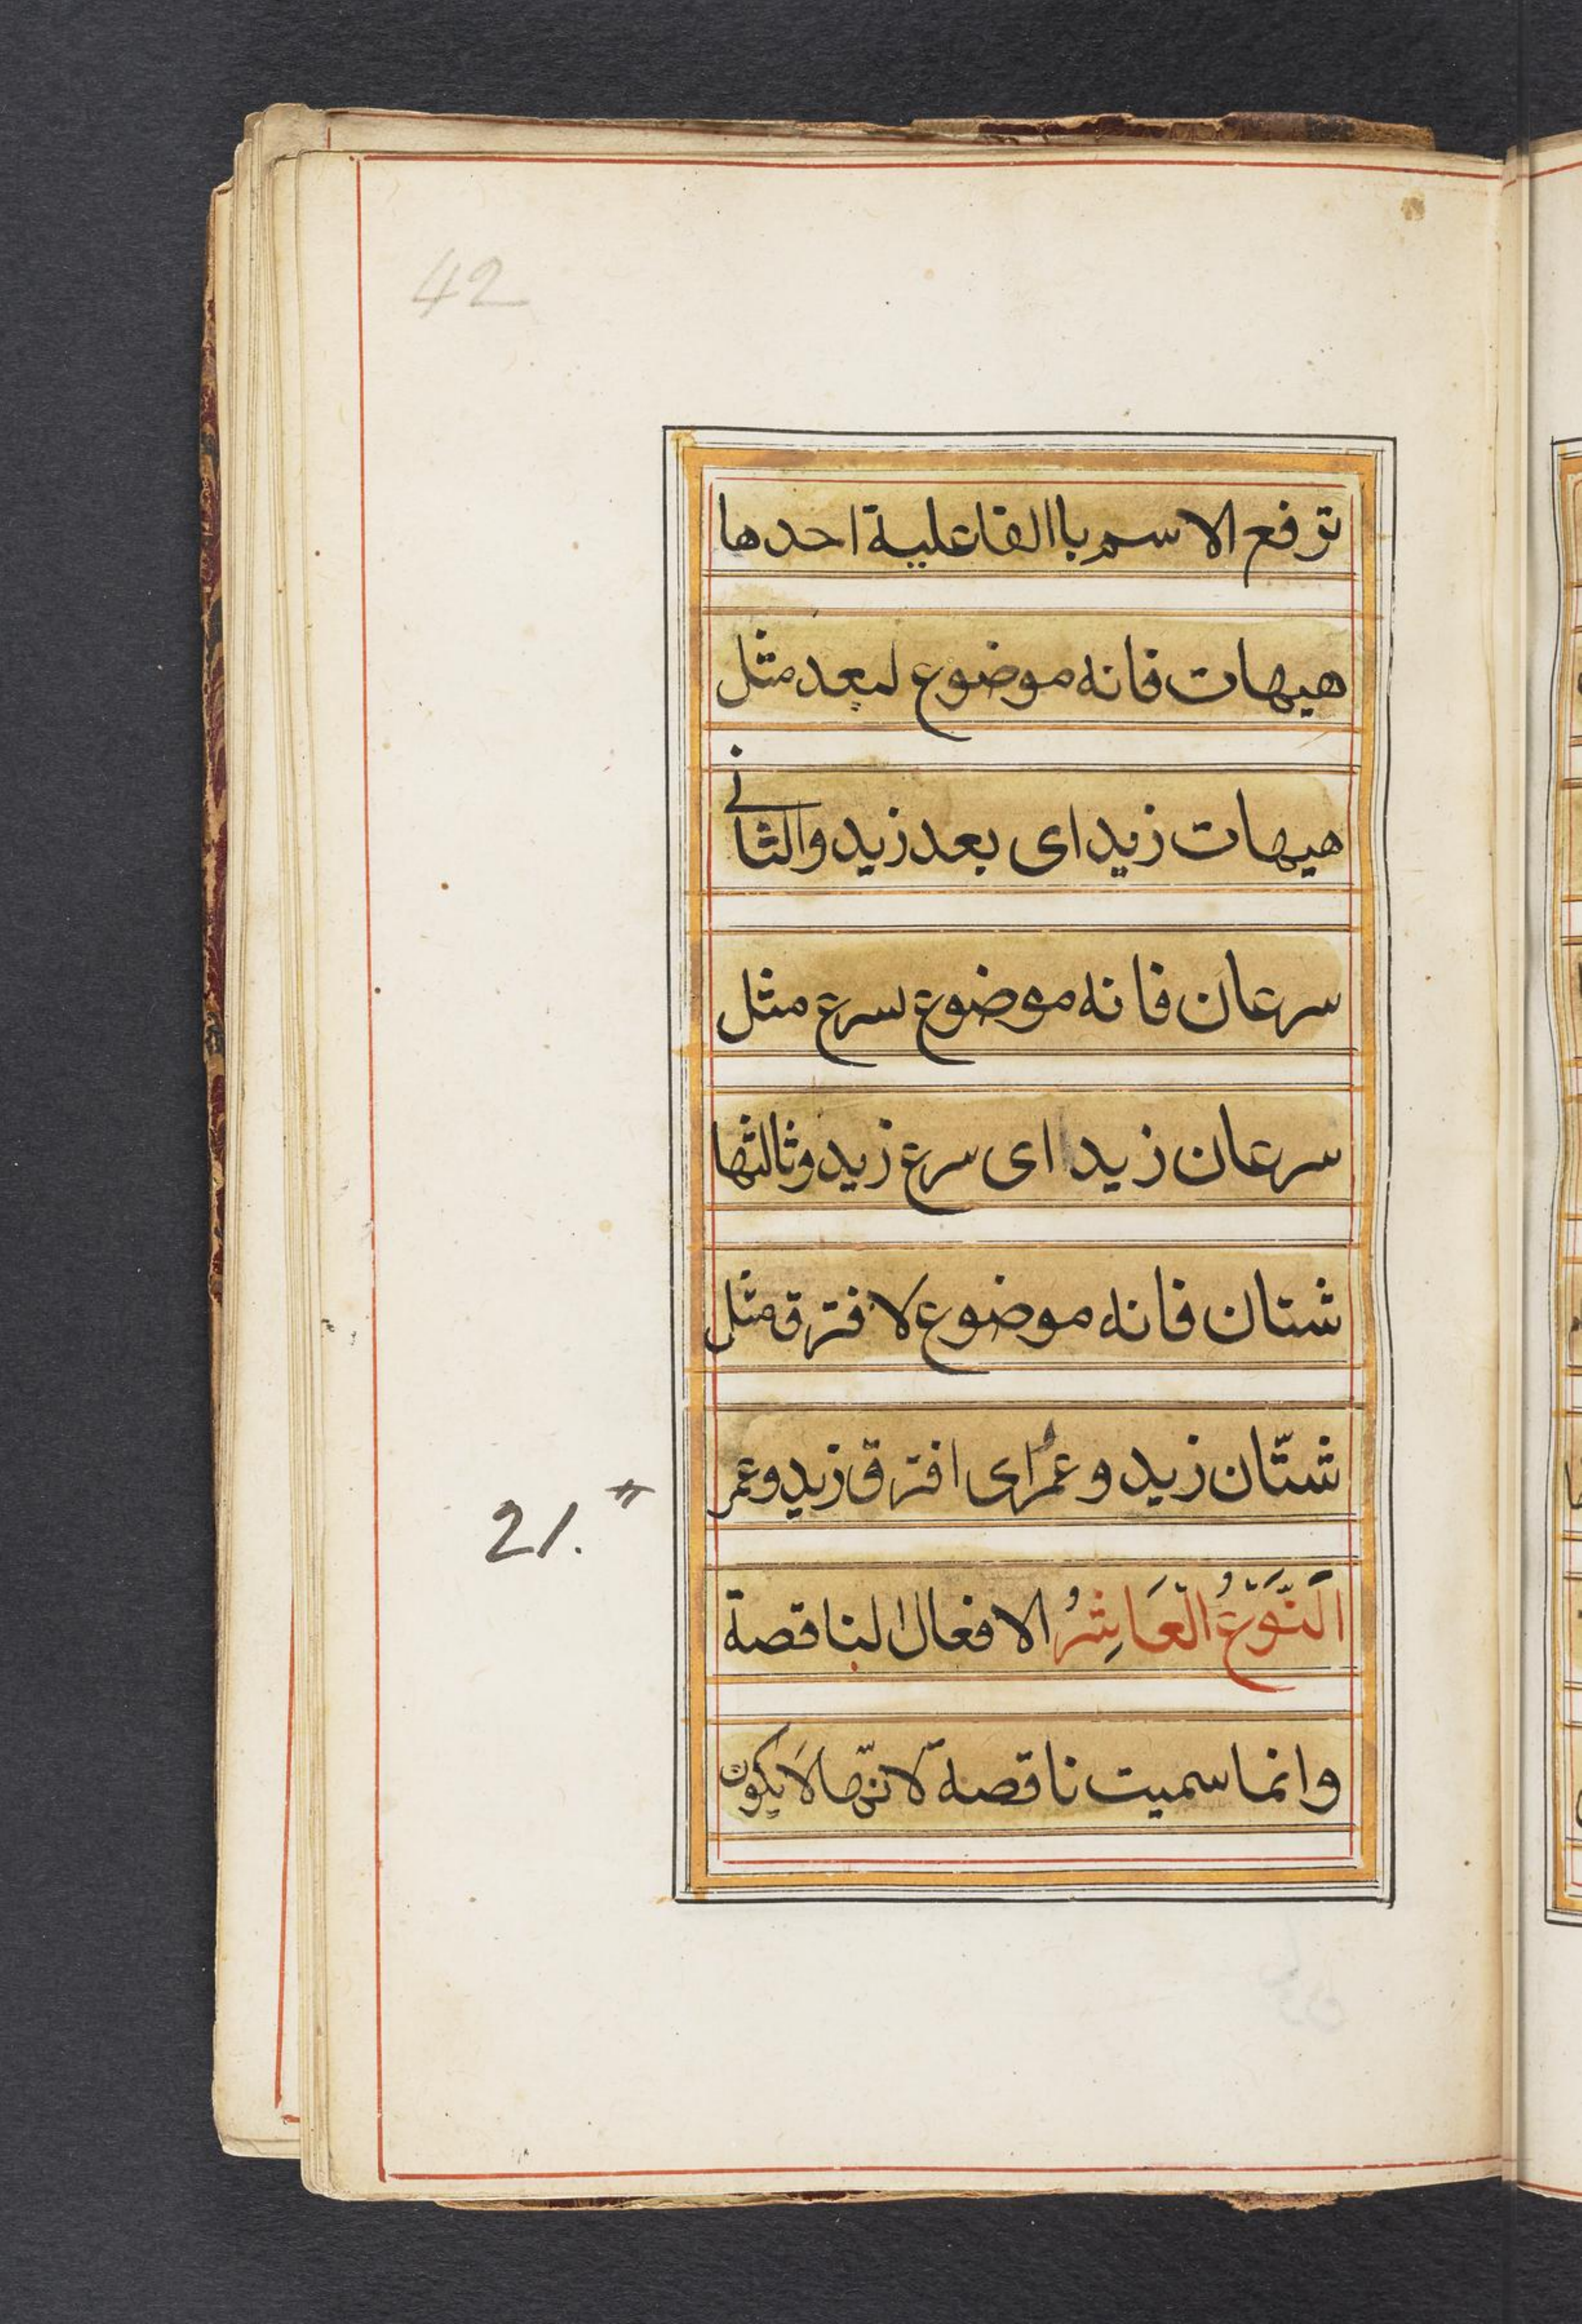 42
ترفع الاسم باالفاعلية احدها
هيهات فانه موضوع لبعد مثل
هيهات زيد اى بعد زيد والثانے
سرعان فانه موضوع لسرع مثل
سرعان زيد اى سرع زيد وثالثها
شتان فانه موضوع لافترق مثل
شتّان زيد وعمر اى افترق زيد وعمر
21.
اَلنَّوْعُ الْعَاشِرُ الافعال الناقصة
وانما سميت ناقصة لانّها لَا يكون